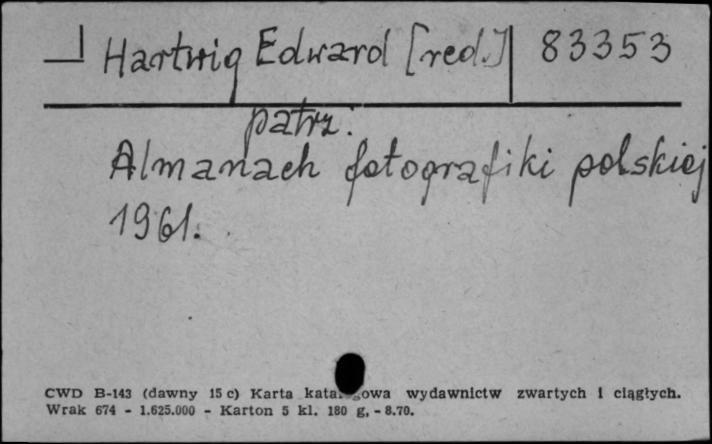 Hartwig Edward [red.] 83353
patrz:
Almanach fotografiki polskiej
1961.
CWD B-143 (dawny 15 c) Karta katalogowa wydawnictw zwartych i ciągłych.
Wrak 674 - 1.625.000 - Karton 5 kl. 180 g, - 8.70.